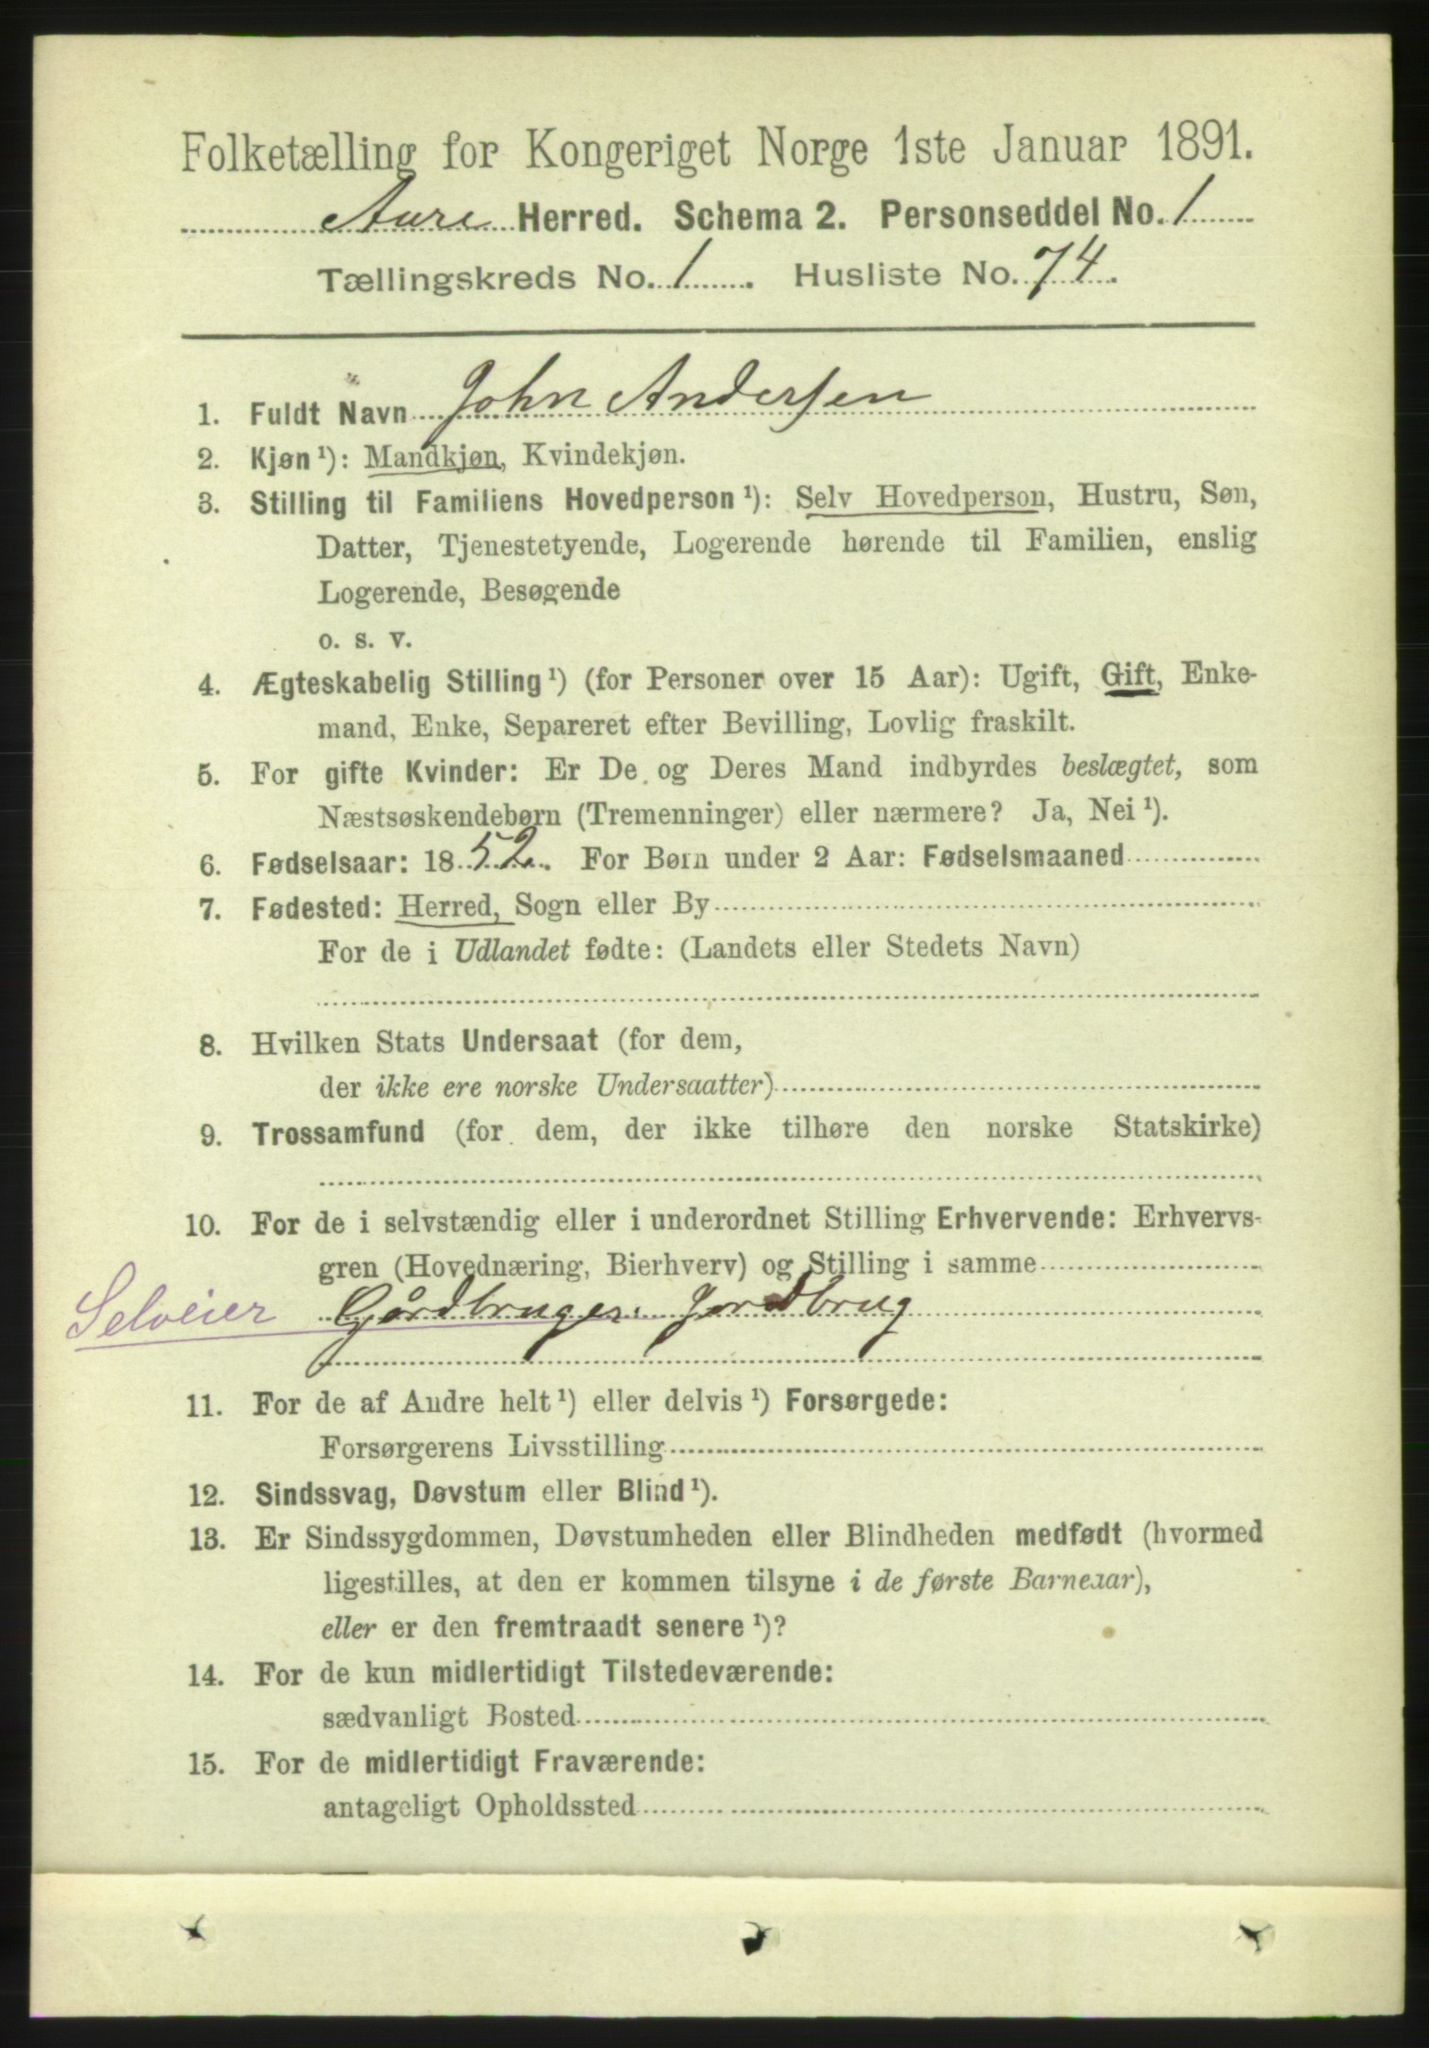 Folketælling for Kongeriget Norge 1ste Januar 1891.
Aure Herred. Schema 2. Personseddel No. 1
Tællingskreds No. 1. Husliste No. 74.
1. Fuldt Navn John Andersen
2. Kjøn¹): Mandkjøn, Kvindekjøn.
3. Stilling til Familiens Hovedperson¹): Selv Hovedperson, Hustru, Søn,
Datter, Tjenestetyende, Logerende hørende til Familien, enslig
Logerende, Besøgende
o. s. v.
4. Ægteskabelig Stilling¹) (for Personer over 15 Aar): Ugift, Gift, Enke-
mand, Enke, Separeret efter Bevilling, Lovlig fraskilt.
5. For gifte Kvinder: Er De og Deres Mand indbyrdes beslægtet, som
Næstsøskendebørn (Tremenninger) eller nærmere? Ja, Nei¹).
6. Fødselsaar: 1852. For Børn under 2 Aar: Fødselsmaaned
7. Fødested: Herred, Sogn eller By
For de i Udlandet fødte: (Landets eller Stedets Navn)
8. Hvilken Stats Undersaat (for dem,
der ikke ere norske Undersaatter)
9. Trossamfund (for dem, der ikke tilhøre den norske Statskirke)
10. For de i selvstændig eller i underordnet Stilling Erhvervende: Erhvervs-
gren (Hovednæring, Bierhverv) og Stilling i samme
Selveier Gårdbruger. Jordbrug
11. For de af Andre helt¹) eller delvis¹) Forsørgede:
Forsørgerens Livsstilling
12. Sindssvag, Døvstum eller Blind¹).
13. Er Sindssygdommen, Døvstumheden eller Blindheden medfødt (hvormed
ligestilles, at den er kommen tilsyne i de første Barneaar),
eller er den fremtraadt senere¹)?
14. For de kun midlertidigt Tilstedeværende:
sædvanligt Bosted
15. For de midlertidigt Fraværende:
antageligt Opholdssted